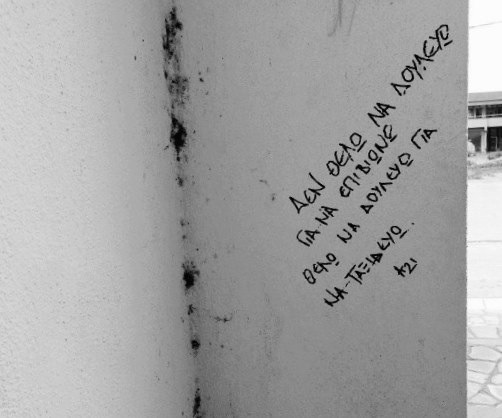 ΔΕΝ ΘΕΛΩ ΝΑ ΔΟΥΛΕΥΩ
ΓΙΑ ΝΑ ΕΠΙΒΙΩΝΕ
ΘΕΛΩ ΝΑ ΔΟΥΛΕΥΩ ΓΙΑ
ΝΑ-ΤΑΞΙΔΕΥΩ.